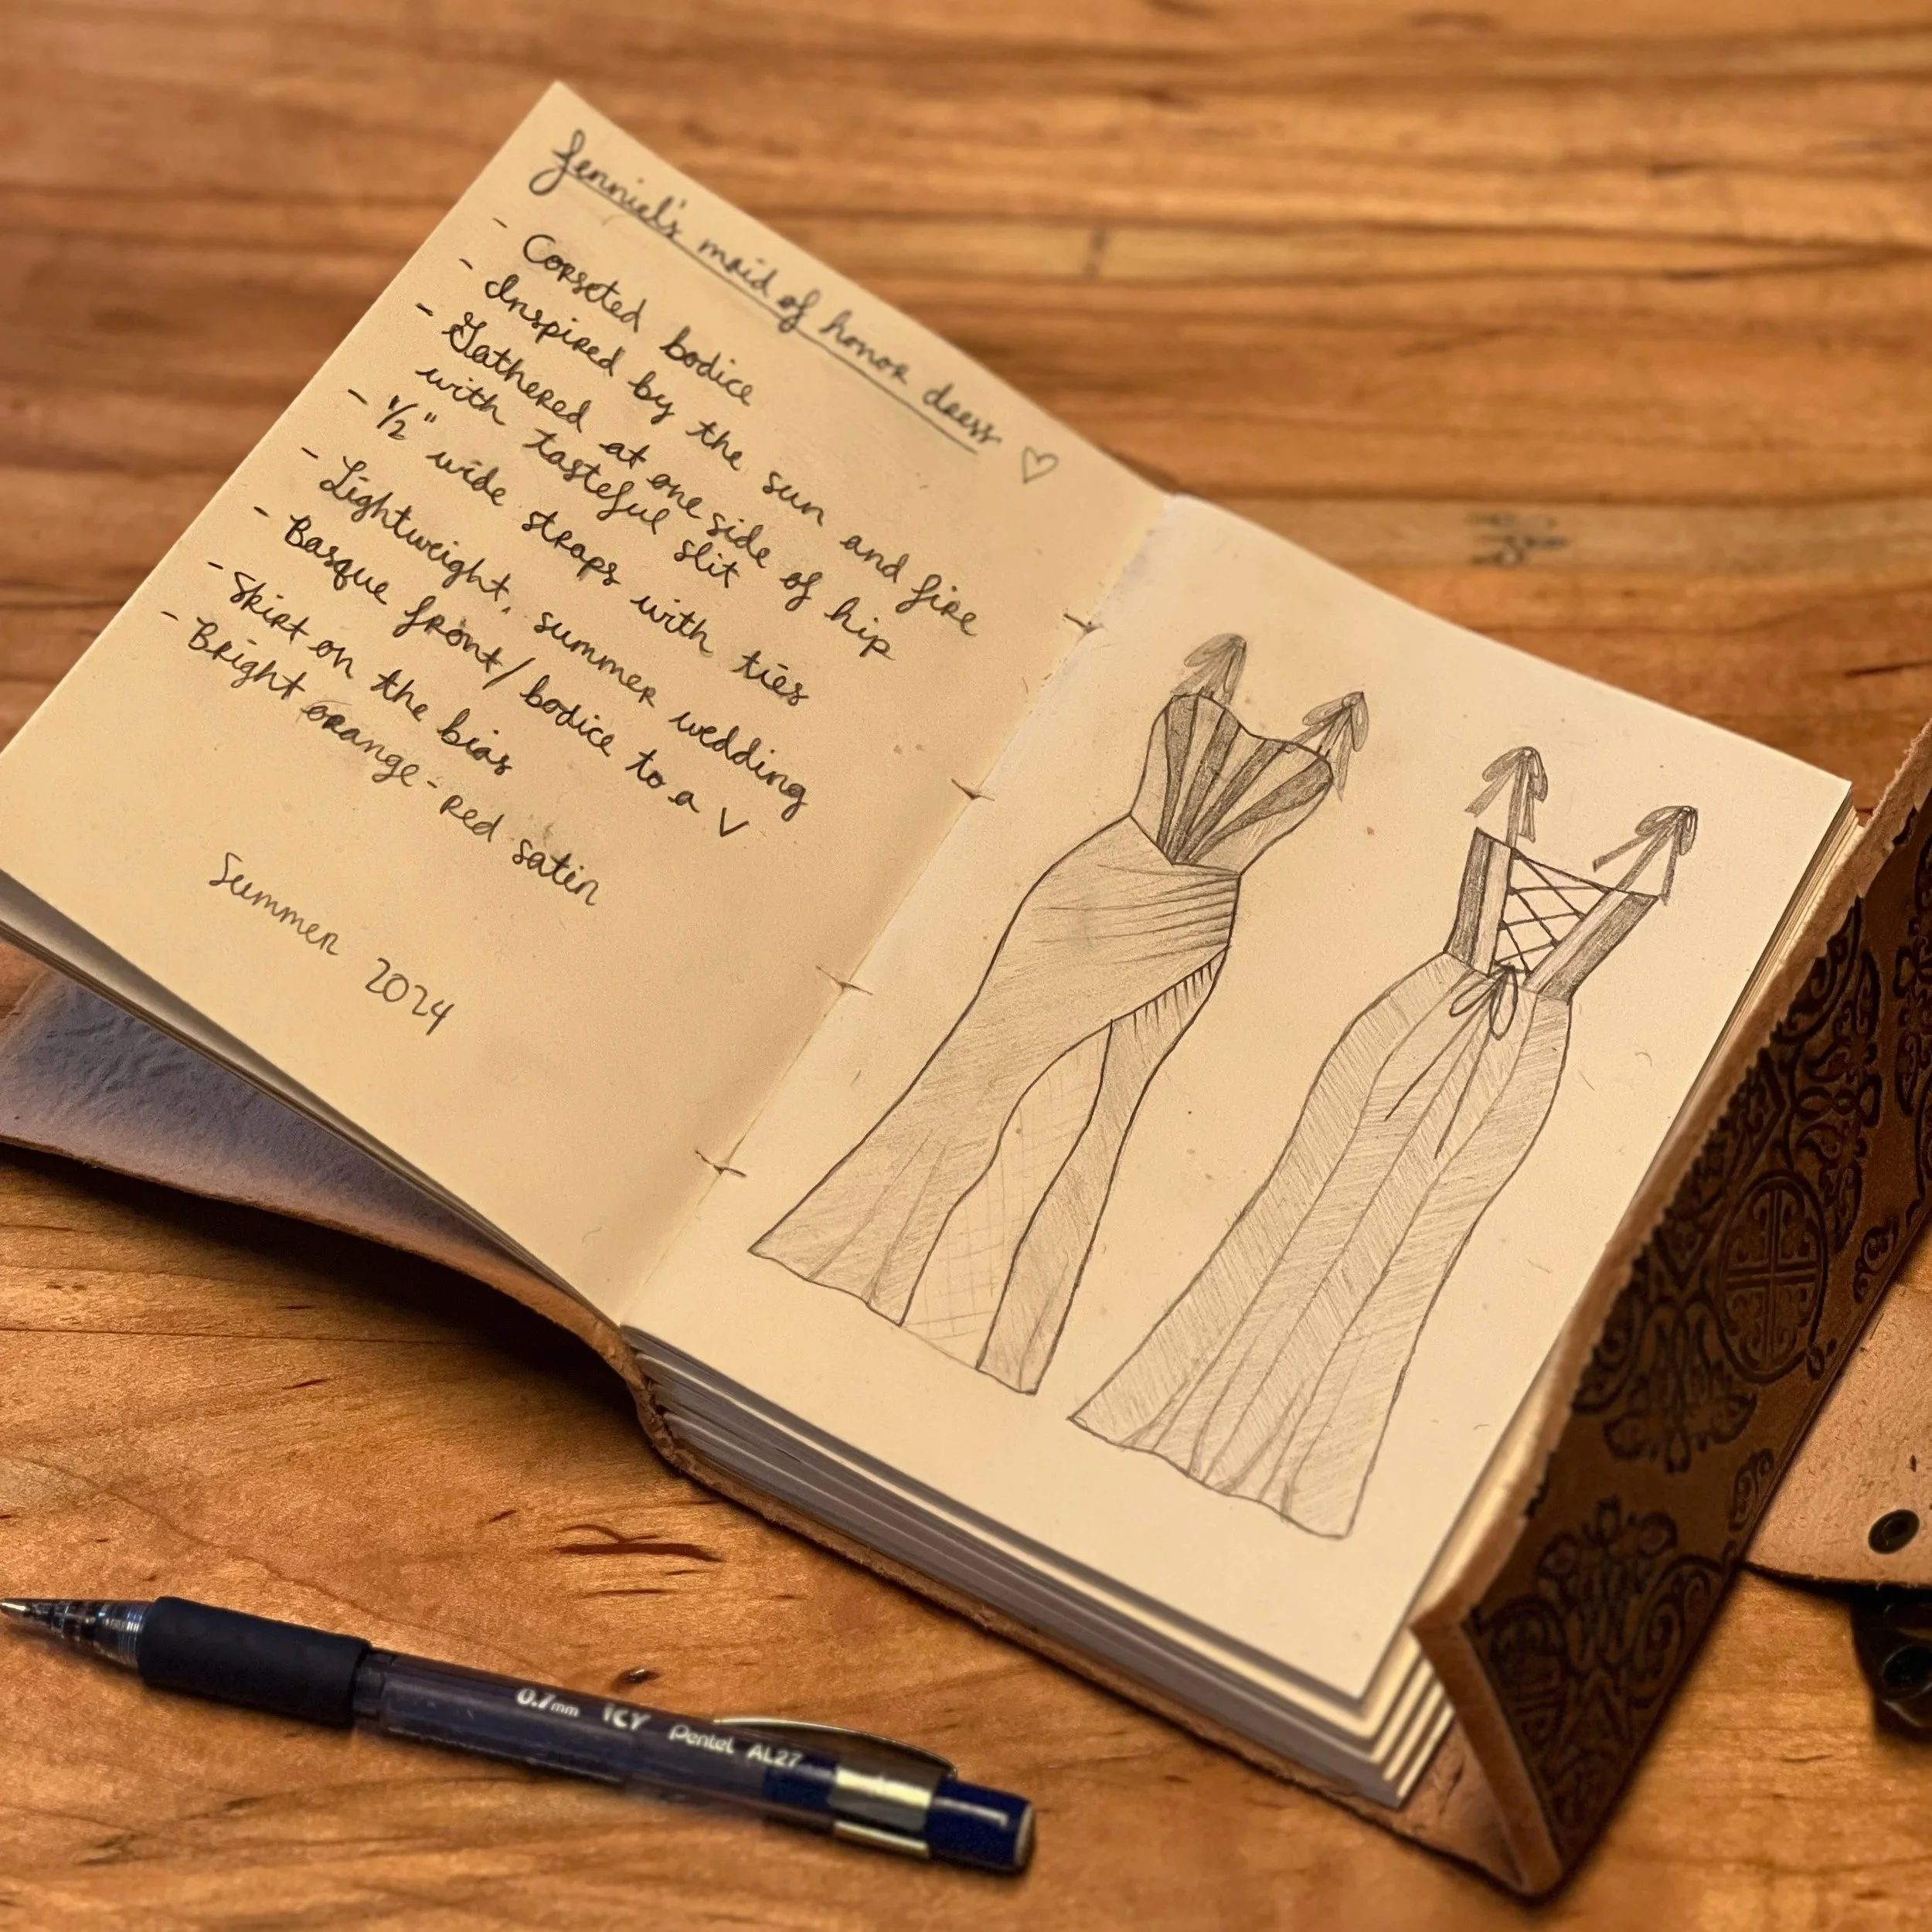 Jenniel's maid of honor dress ♡
- Corseted bodice
- Inspired by the sun and fire
- Gathered at one side of hip
with tasteful slit
- 1/2" wide straps with ties
- Lightweight, summer wedding
- Basque front/bodice to a V
- Skirt on the bias
- Bright orange-red satin
Summer 2024
0.7mm ICY Pentel AL27